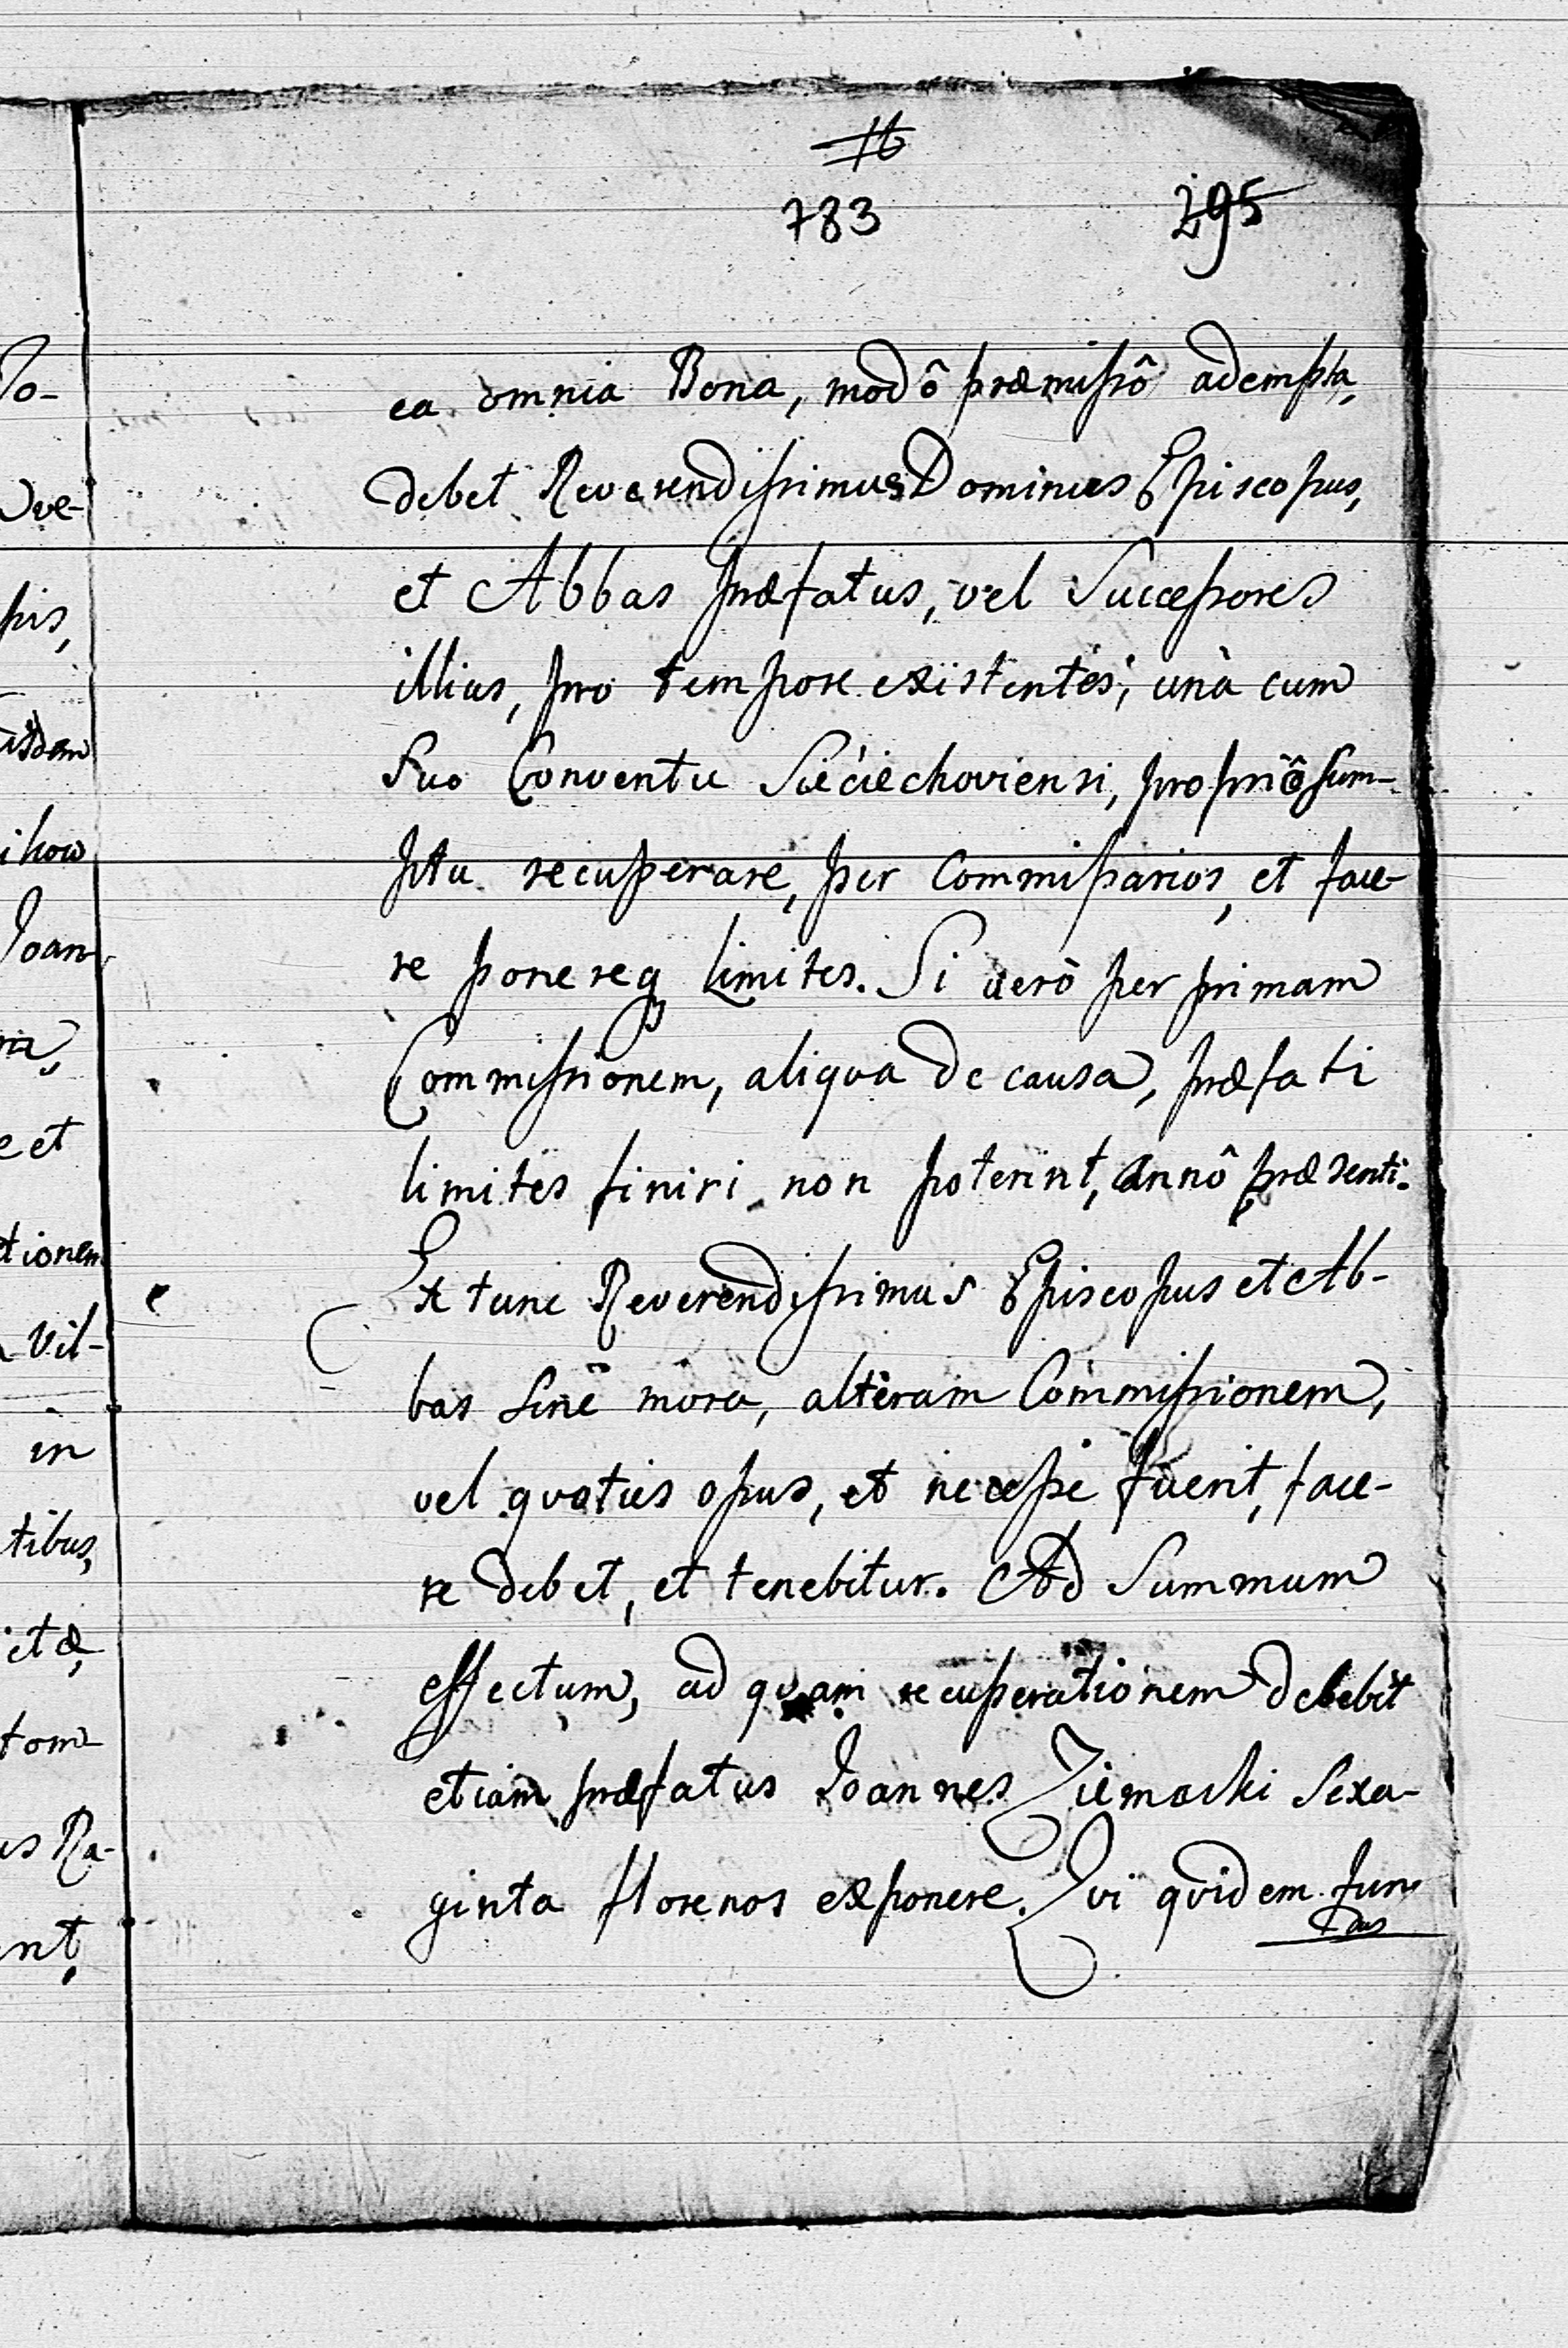 783 295
ea omnia Bona, modô præmissô adempta,
debet Reverendissimus Dominus Episcopus,
et Abbas præfatus, vel Successores
illius, pro tempore existentes, unà cum
suo Conventu Sieciechoviensi, propriô sum-
ptu recuperare, per Commissarios, et face-
re ponereq limites. Si verò per primam
Commissionem, aliqua de causa, præfati
limites finiri non poterint, annô præsenti.
Ex tunc Reverendissimus Episcopus et Ab-
bas sine mora, alteram Commissionem,
vel quoties opus, et necesse fuerit, face-
re debet, et tenebitur. Ad Summum
effectum, ad quam recuperationem debebit
etiam præfatus Joannes Ziemacki sexa-
ginta florenos exponere. Qvi qvidem fun
dus